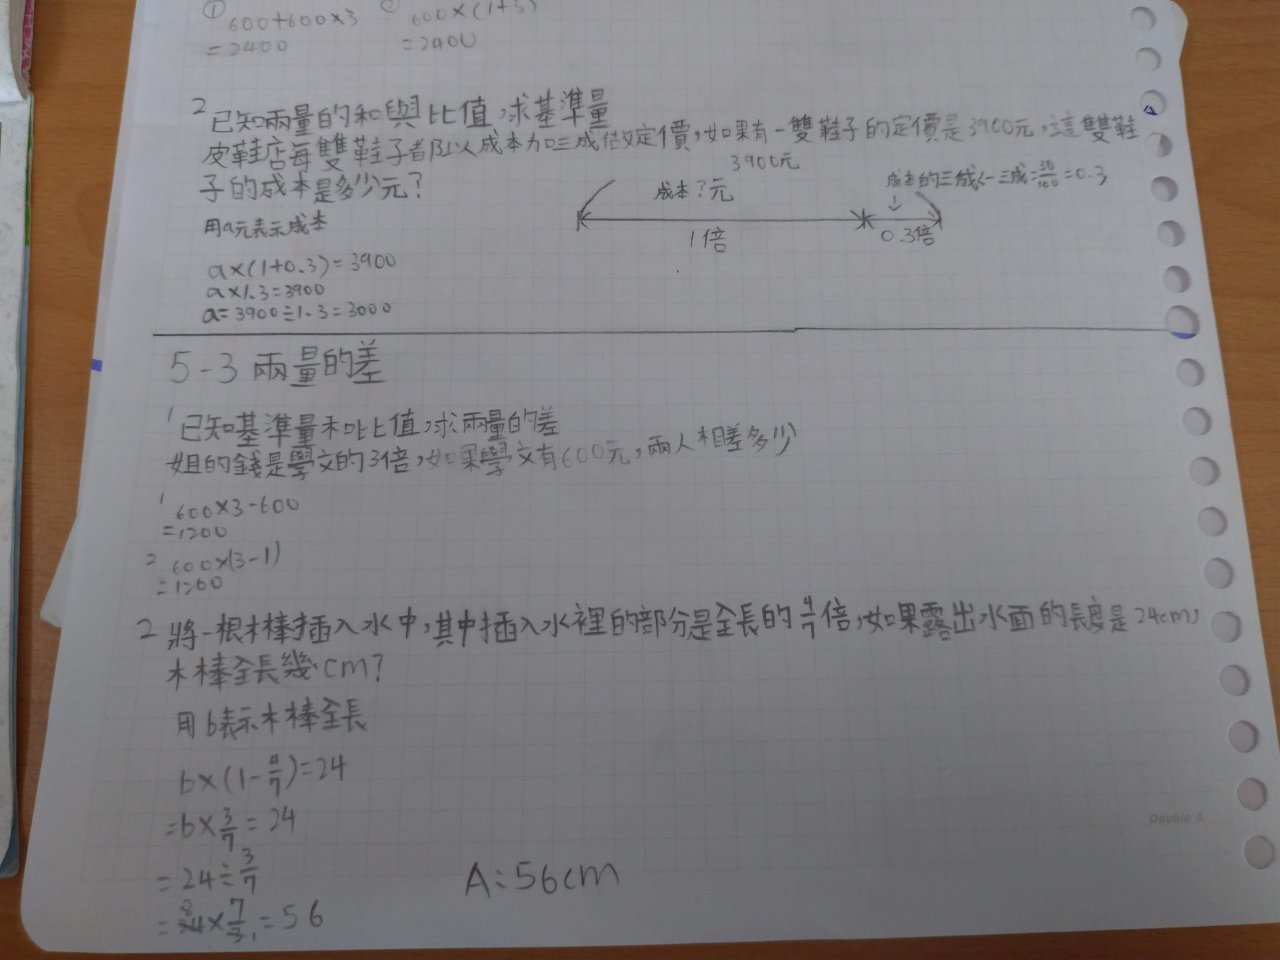 ① 600+600×3
② 600×(1+3)
=2400
=2400
2 已知兩量的和與比值,求基準量
皮鞋店每雙鞋子都以成本加三成估定價,如果有一雙鞋子的定價是3900元,這雙鞋
子的成本是多少元?
3900元
成本?元
成本的三成←三成=30/100=0.3
1倍
0.3倍
用a元表示成本
a×(1+0.3)=3900
a×1.3=3900
a=3900÷1.3=3000
5-3 兩量的差
1 已知基準量和比值,求兩量的差
姐的錢是學文的3倍,如果學文有600元,兩人相差多少
1 600×3-600
=1200
2 600×(3-1)
=1200
2 將一根木棒插入水中,其中插入水裡的部分是全長的4/7倍,如果露出水面的長度是24cm,
木棒全長幾cm?
用b表示木棒全長
b×(1-4/7)=24
=b×3/7=24
=24÷3/7
=24×7/3=56
8
1
A:56cm
Double A